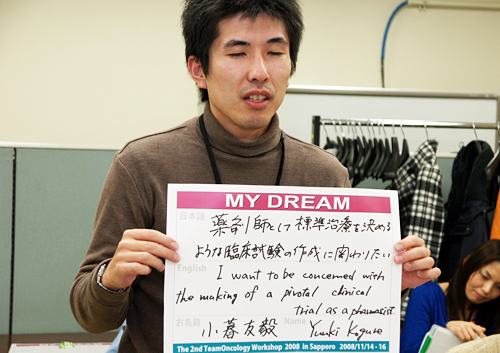 MY DREAM
日本語
薬剤師として標準治療を決める
ような臨床試験の作成に関わりたい
English
I want to be concerned with
the making of a pivotal clinical
trial as a pharmacist.
お名前 小暮友毅 Name Yuuki Kogure
The 2nd TeamOncology Workshop 2008 in Sapporo 2008/11/14-16